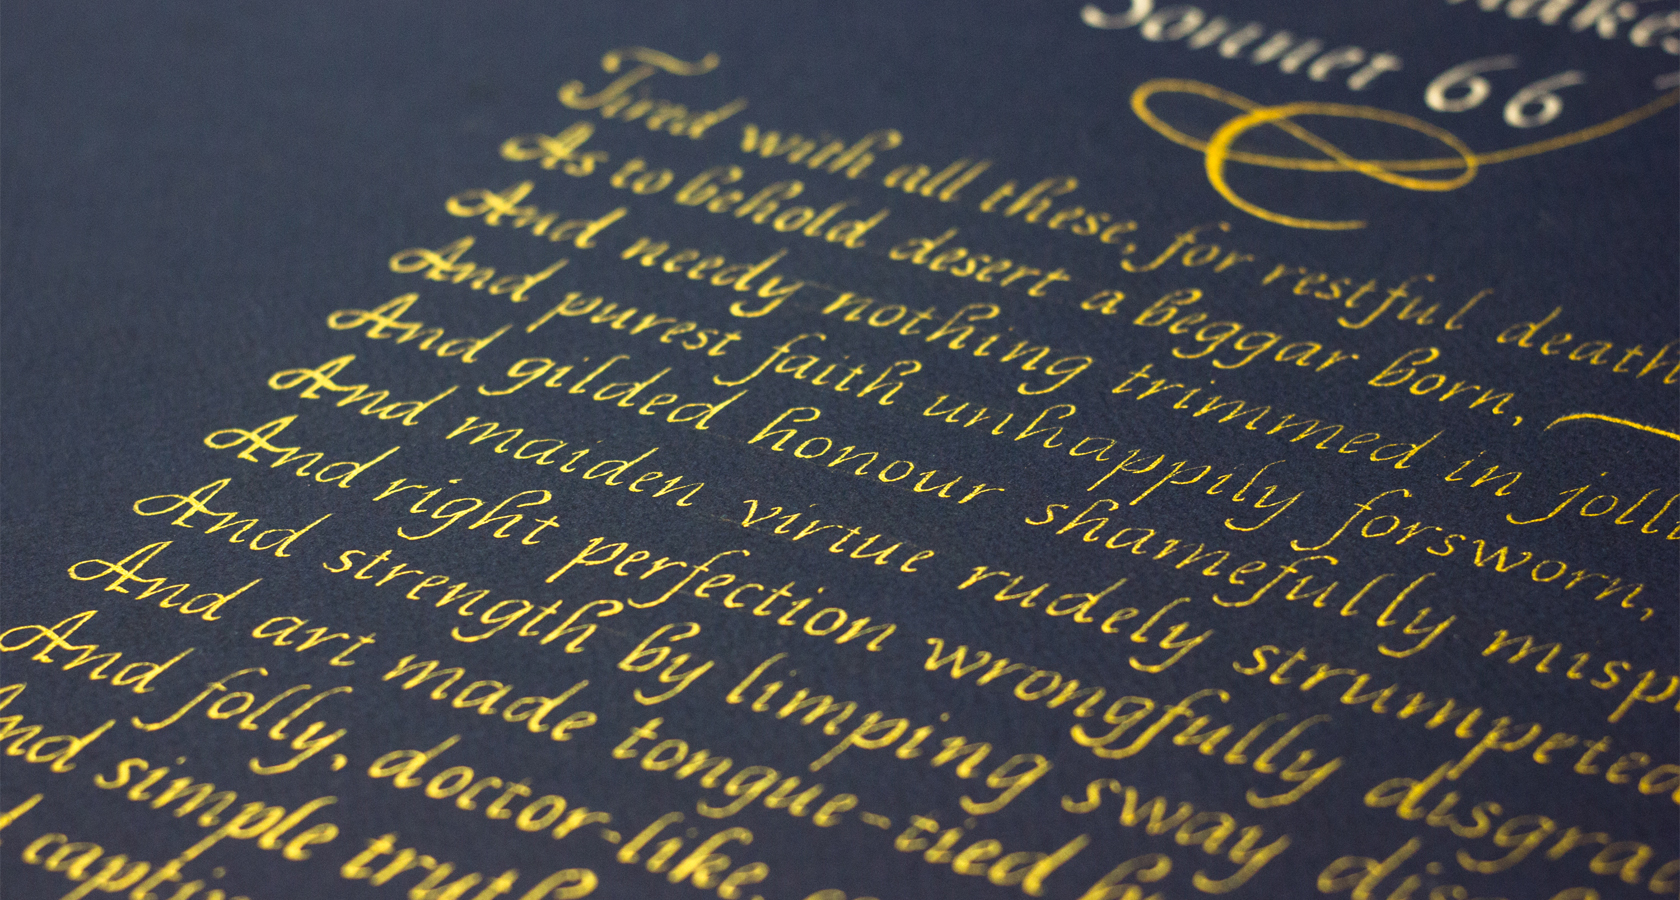 Sonnet 66
Tired with all these, for restful death
As to behold desert a beggar born,
And needy nothing trimmed in
And purest faith unhappily forsworn,
And gilded honour shamefully
And maiden virtue rudely strumpeted
And right perfection wrongfully
And strength by limping sway
And art made tongue-tied by
And folly, doctor-like,
And simple truth